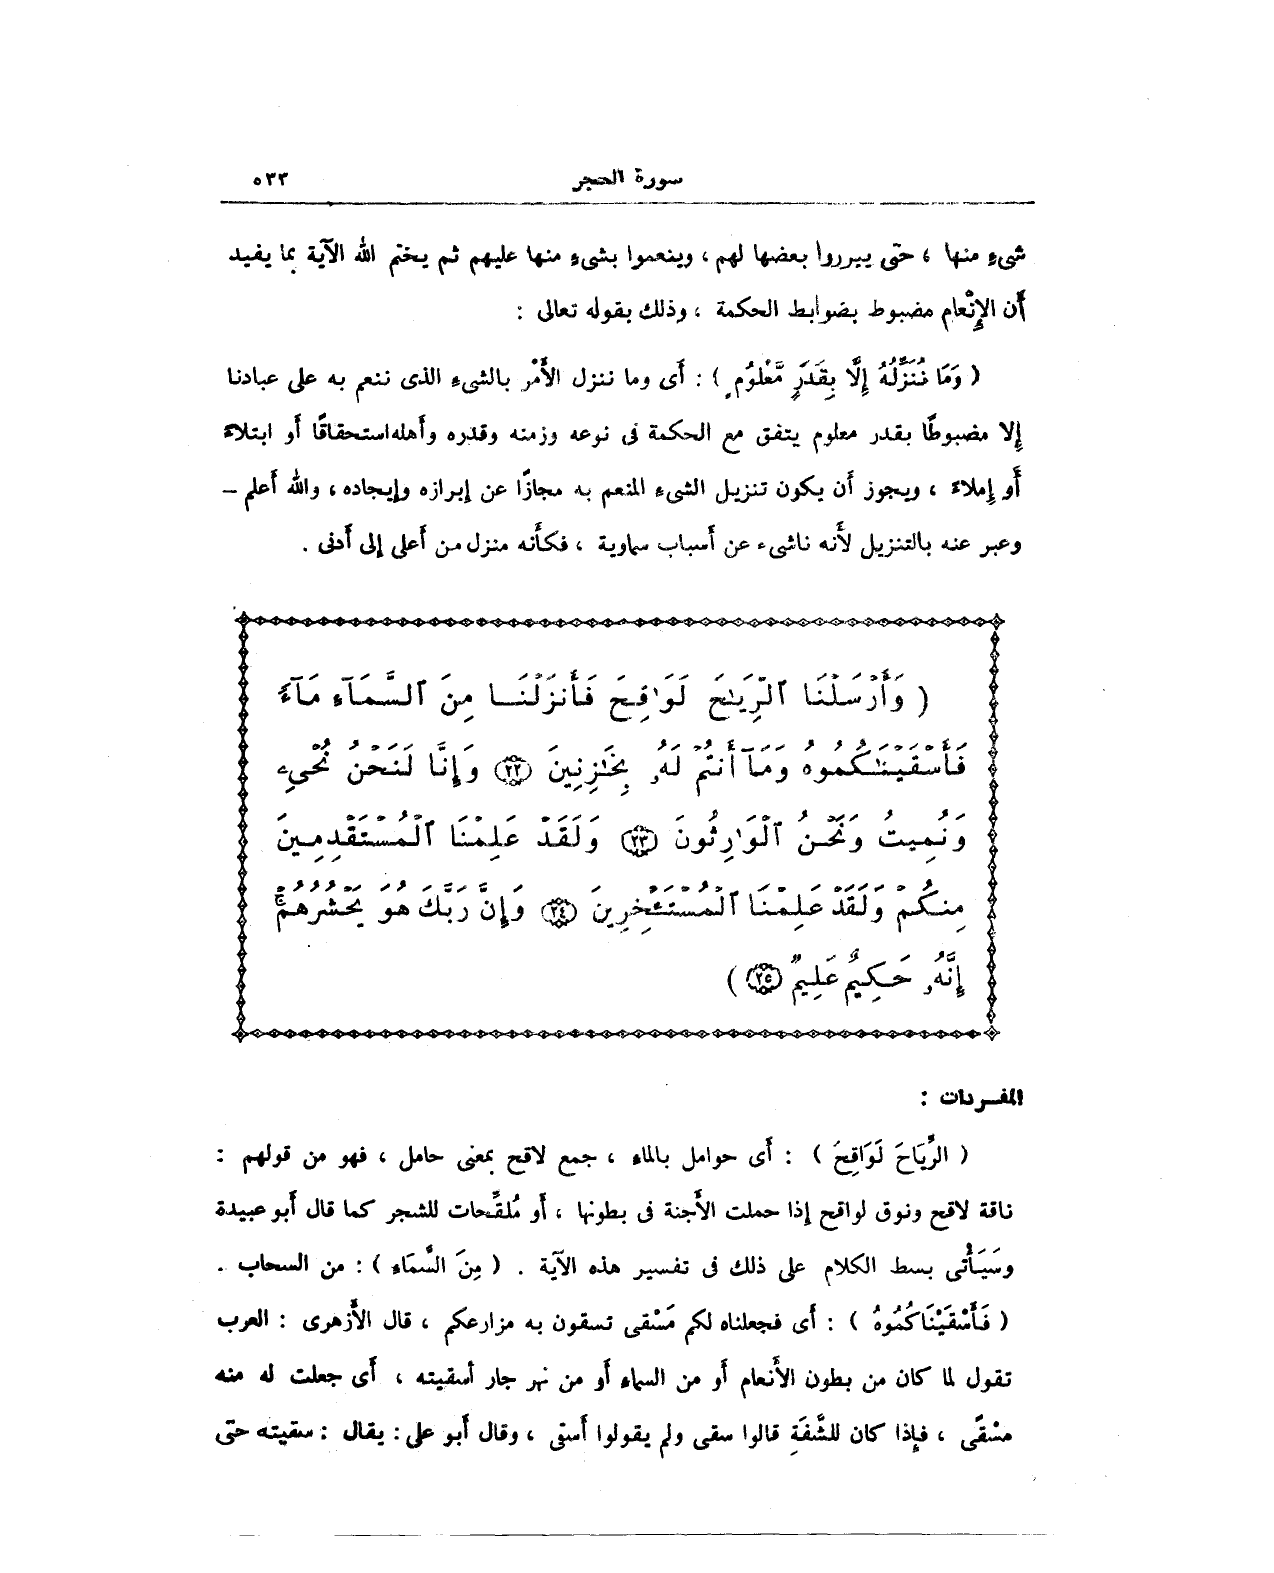 سورة الحجر ٥٣٣
شىءٍ منها ، حتى يبرروا بعضها لهم ، وينعموا بشىءٍ منها عليهم ثم يختم الله الآية بما يفيد
أَن الإِنْعام مضبوط بضوابط الحكمة ، وذلك بقوله تعالى :
( وَمَا نُنَزِّلُهُ إِلَّا بِقَدَرٍ مَّعْلُومٍ ) : أَى وما ننزل الأَمْر بالشىءِ الذى ننعم به على عبادنا
إِلا مضبوطًا بقدر معلوم يتفق مع الحكمة فى نوعه وزمنه وقدره وأَهله استحقاقًا أَو ابتلاءً
أَو إِملاءً ، ويجوز أَن يكون تنزيل الشىءِ المنعم به مجازًا عن إِبرازه وإِيجاده ، والله أَعلم –
وعبر عنه بالتنزيل لأَنه ناشىء عن أَسباب سماوية ، فكأَنه منزل من أَعلى إِلى أَدنى .
( وَأَرْسَلْنَا ٱلرِّيَٰحَ لَوَٰقِحَ فَأَنزَلْنَا مِنَ ٱلسَّمَآءِ مَآءً
فَأَسْقَيْنَٰكُمُوهُ وَمَآ أَنتُمْ لَهُۥ بِخَٰزِنِينَ ٢٢ وَإِنَّا لَنَحْنُ نُحْىِۦ
وَنُمِيتُ وَنَحْنُ ٱلْوَٰرِثُونَ ٢٣ وَلَقَدْ عَلِمْنَا ٱلْمُسْتَقْدِمِينَ
مِنكُمْ وَلَقَدْ عَلِمْنَا ٱلْمُسْتَـْٔخِرِينَ ٢٤ وَإِنَّ رَبَّكَ هُوَ يَحْشُرُهُمْۚ
إِنَّهُۥ حَكِيمٌ عَلِيمٌ ٢٥ )
المفردات :
( الرِّيَاحَ لَوَاقِحَ ) : أَى حوامل بالماءِ ، جمع لاقح بمعنى حامل ، فهو من قولهم :
ناقة لاقح ونوق لواقح إِذا حملت الأَجنة فى بطونها ، أَو مُلقِّحات للشجر كما قال أَبو عبيدة
وسَيَأْتى بسط الكلام على ذلك فى تفسير هذه الآية . ( مِنَ السَّمَاءِ ) : من السحاب .
( فَأَسْقَيْنَاكُمُوهُ ) : أَى فجعلناه لكم مَسْقى تسقون به مزارعكم ، قال الأَزهرى : العرب
تقول لما كان من بطون الأَنعام أَو من السماءِ أَو من نهر جار أَسقيته ، أَى جعلت له منه
مسْقًى ، فإِذا كان للشَّفَةِ قالوا سقى ولم يقولوا أَسقى ، وقال أَبو على : يقال : سقيته حتى